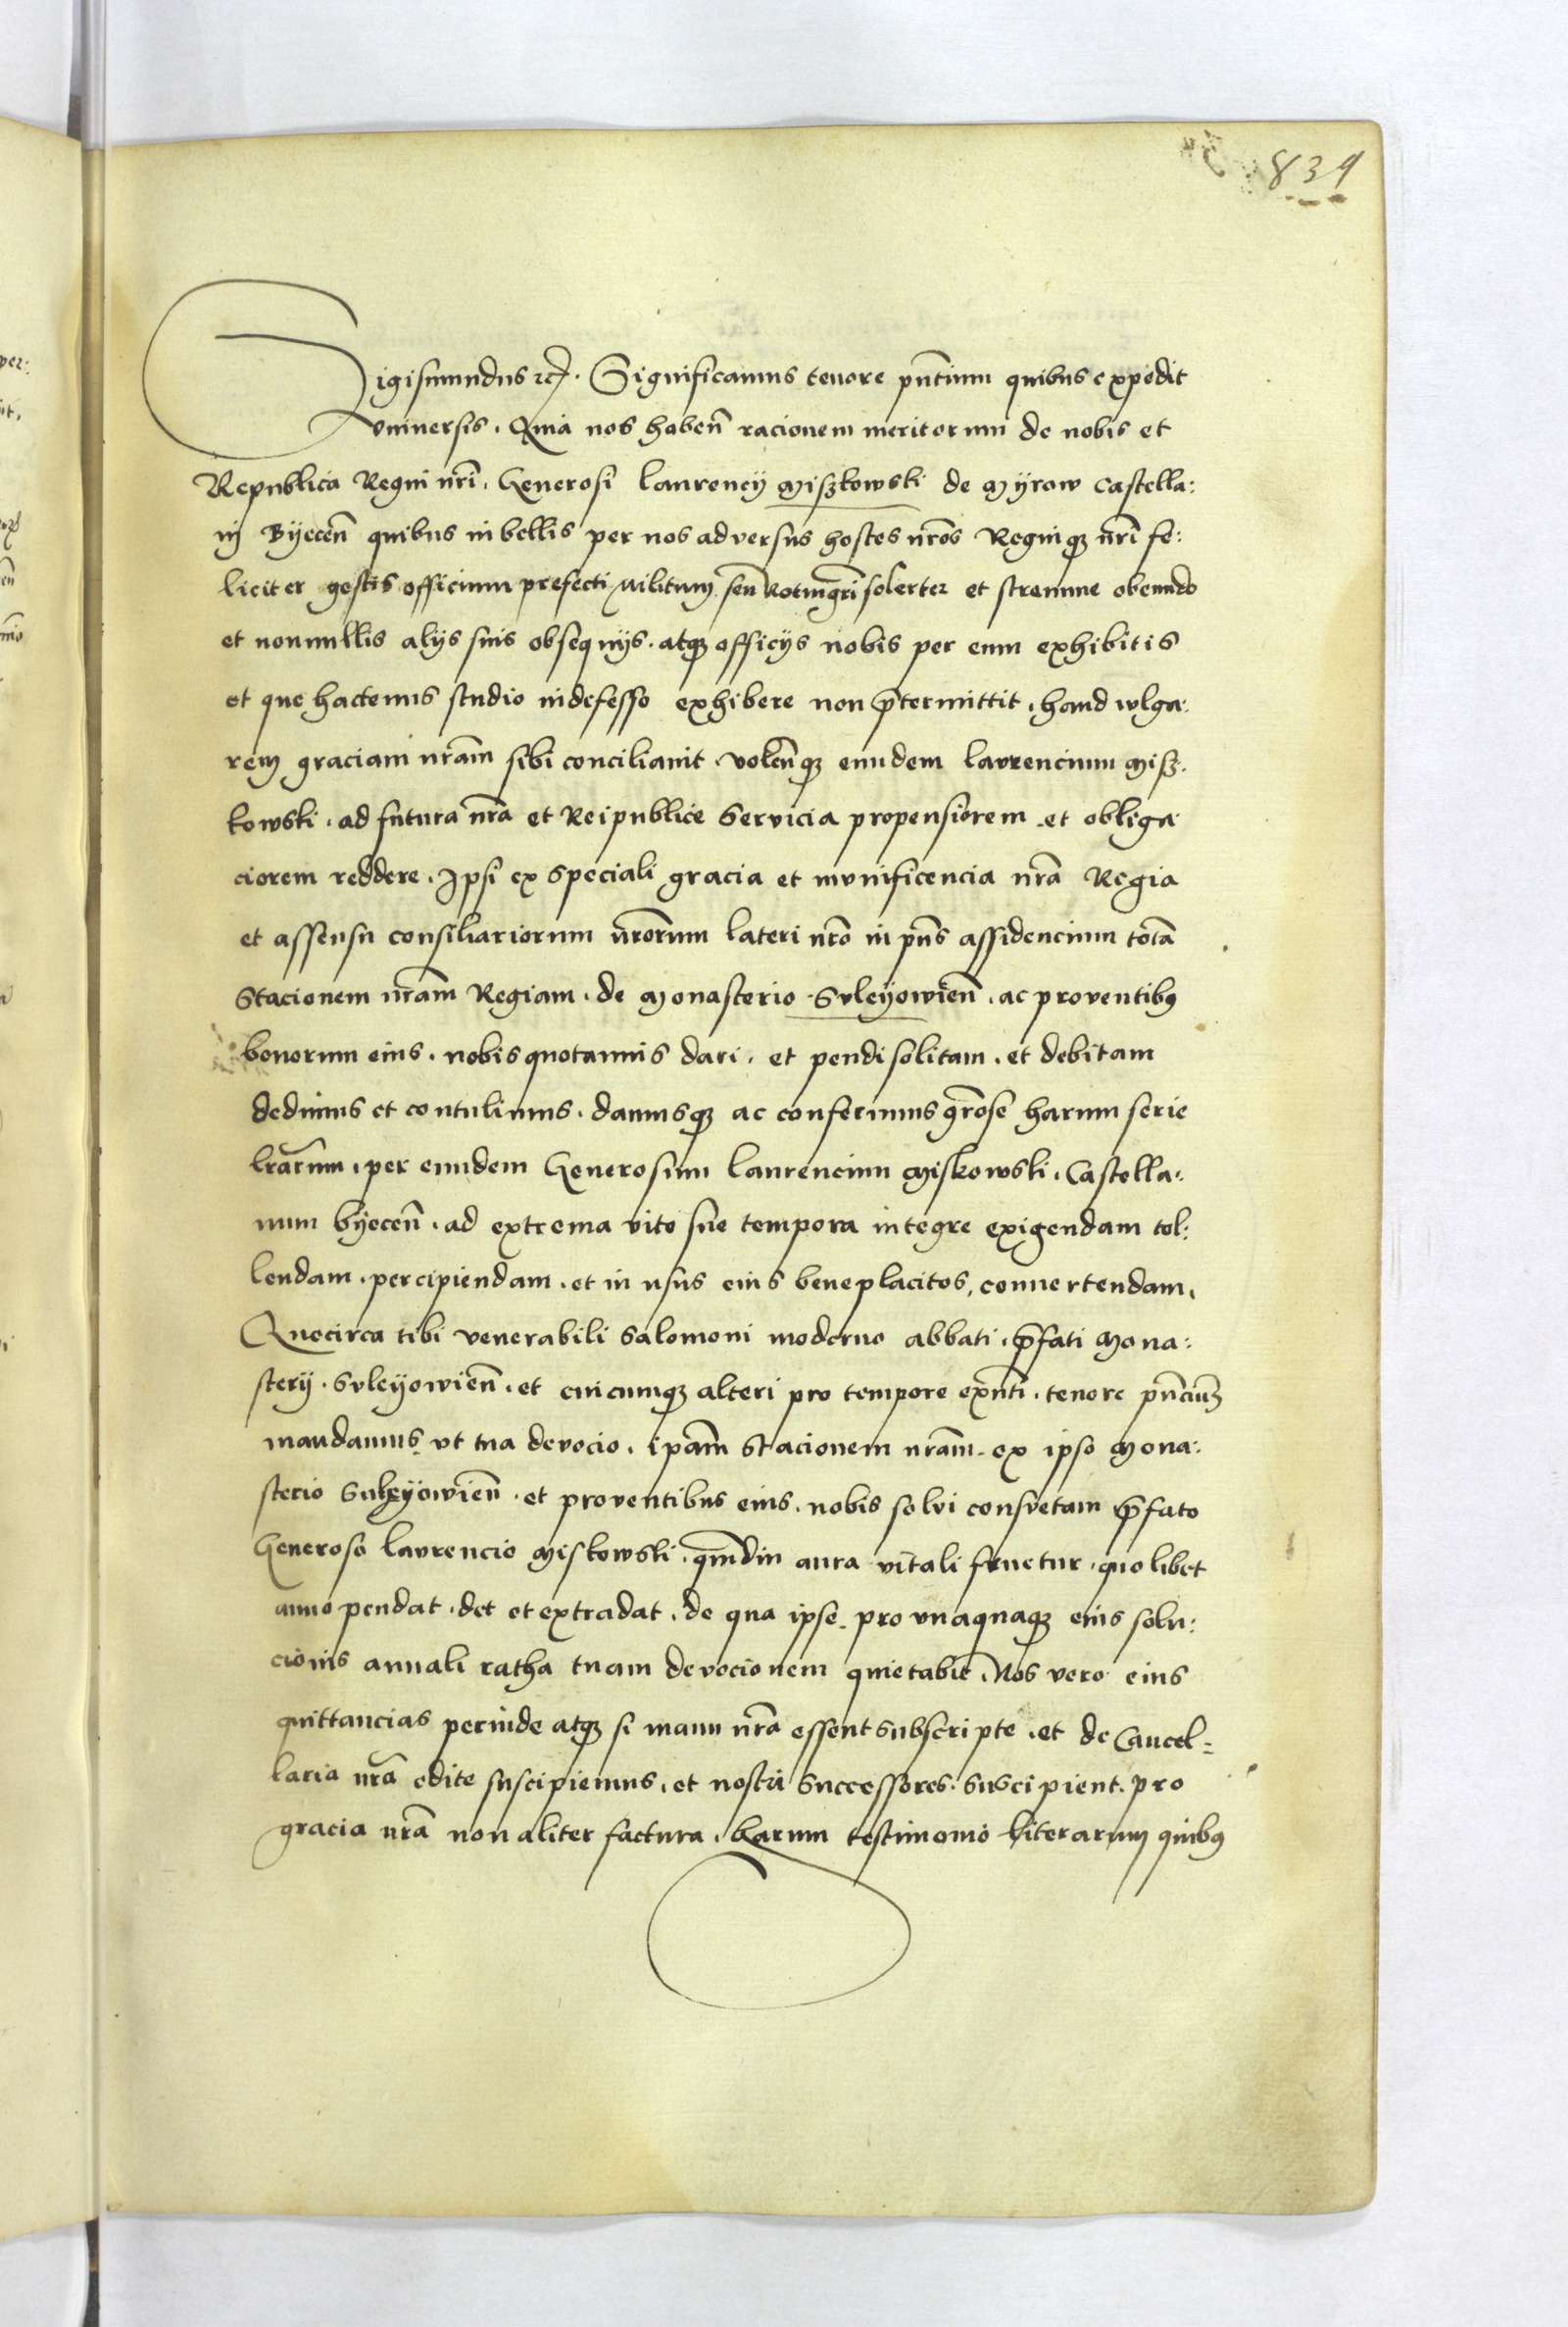 839
Sigismundus etc. Significamus tenore pñtium quibus expedit
vniuersis. Quia nos habeñ racionem meritorum de nobis et
Republica Regni nr̃i. Generosi laurencij Miszkowski de Myrow Castella:
nj Byeceñ quibus in bellis per nos adversus hostes nr̃os Regniqȝ nr̃i fe:
liciter gestis officium prefecti militum seu Rotmgr̃i solerter et strennue obeundo
et nonnullis alijs suis obsequijs. atqȝ officijs nobis per eum exhibitis
et que hactenus studio indefesso exhibere non p̃termittit. haud wlga:
rem graciam nr̃am sibi conciliauit. volen̄qȝ eundem laurencium Misz:
kowski. ad futura nr̃a et Reipublice Servicia propensiorem et obliga
ciorem reddere. Ipsi ex speciali gracia et mvnificencia nr̃a Regia
et assensu consiliariorum nr̃orum lateri nr̃o in pñs assidencium totã
Stacionem nr̃am Regiam. de Monasterio Svleyowieñ. ac proventibꝰ
bonorum eius. nobis quotannis dari. et pendi solitam. et debitam
dedimus et contulimus. damusqȝ ac conferimus gr̃ose harum serie
lr̃arum. per eundem Generosum laurencium Miskowski. Castella:
num byeceñ. ad extrema vite sue tempora integre exigendam tol:
lendam. percipiendam. et in usus eius beneplacitos, conuertendam.
Quocirca tibi venerabili Salomoni moderno abbati. p̃fati Mona:
sterij. Svleyowieñ. et cuicumqȝ alteri pro tempore exñti. tenore pñciuȝ
mandamus vt tua devocio. ip̃am Stacionem nr̃am. ex ipso Mona:
sterio Suleyowieñ. et proventibus eius. nobis solvi consvetam p̃fato
Generoso lavrencio Miskowski. qm̃diu aura vitali fruetur. quolibet
anno pendat. det et extradat. de qua ipse. pro vnaquaqȝ eius solu:
cionis annali ratha tuam devocionem quietabit. Nos vero eius
quittancias perinde atqȝ si manu nr̃a essent subscripte. et de Cancel=
laria nr̃a edite suscipiemus. et nostri Successores. suscipient. pro
gracia nr̃a non aliter factura. harum testimonio literarum quibꝰ